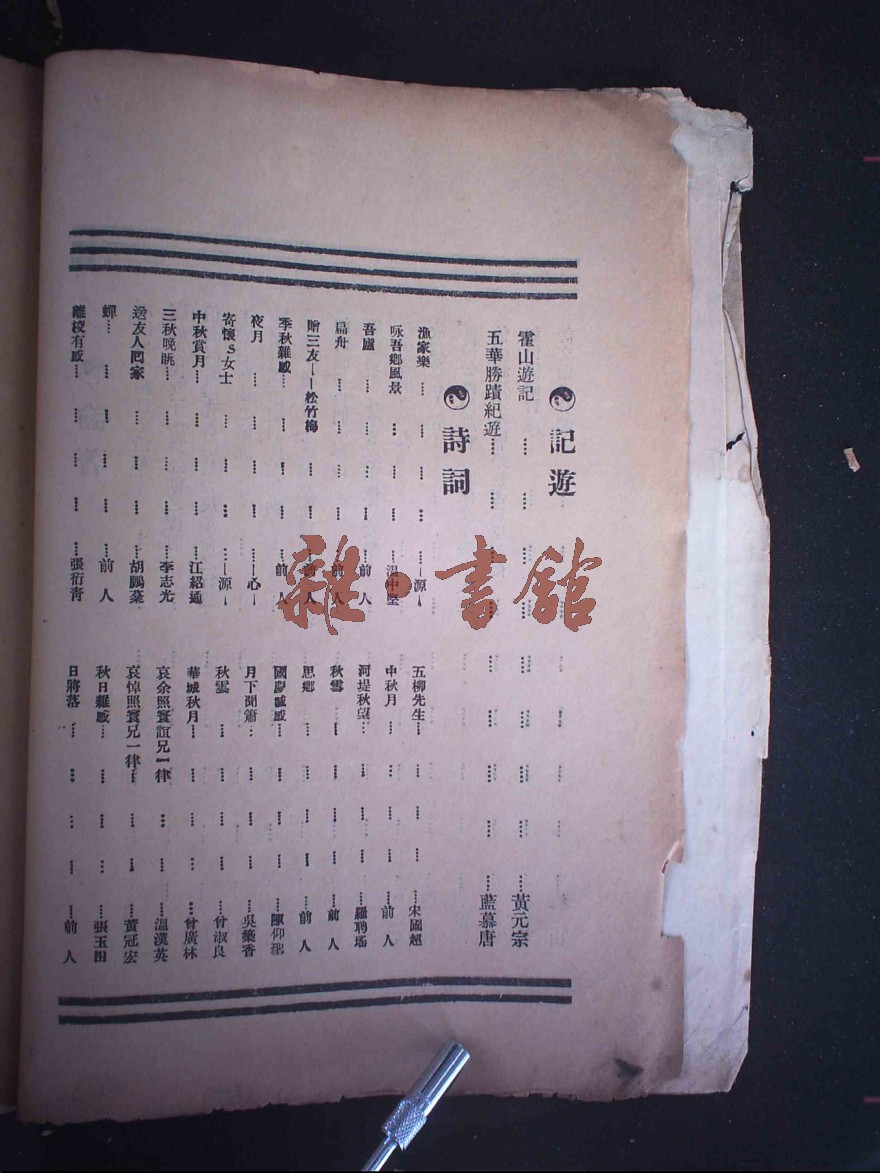 記遊
霍山遊記 黃元宗
五華勝蹟紀遊 藍慕唐
詩詞
漁家樂 源
詠吾鄉風景 溫中堅
吾廬 前人
扁舟 前人
贈三友——松竹梅 前人
季秋雜感 前人
夜月 心
寄懷S女士 源
中秋賞月 江紹通
三秋晚眺 李志光
送友人回家 胡鵬棻
蟬 前人
離校有感 張衍青
五柳先生 宋國超
中秋月 前人
河堤秋望 羅聘瑤
秋雪 前人
思鄉 前人
國慶喊感 陳仰聖
月下聞簫 吳藥香
秋雲 曾淑良
華城秋月 曾廣林
哀余照寰誼兄一律 溫漢英
哀悼照寰兄一律 黃冠宏
秋日雜感 張玉田
日將落 前人
雜·書館